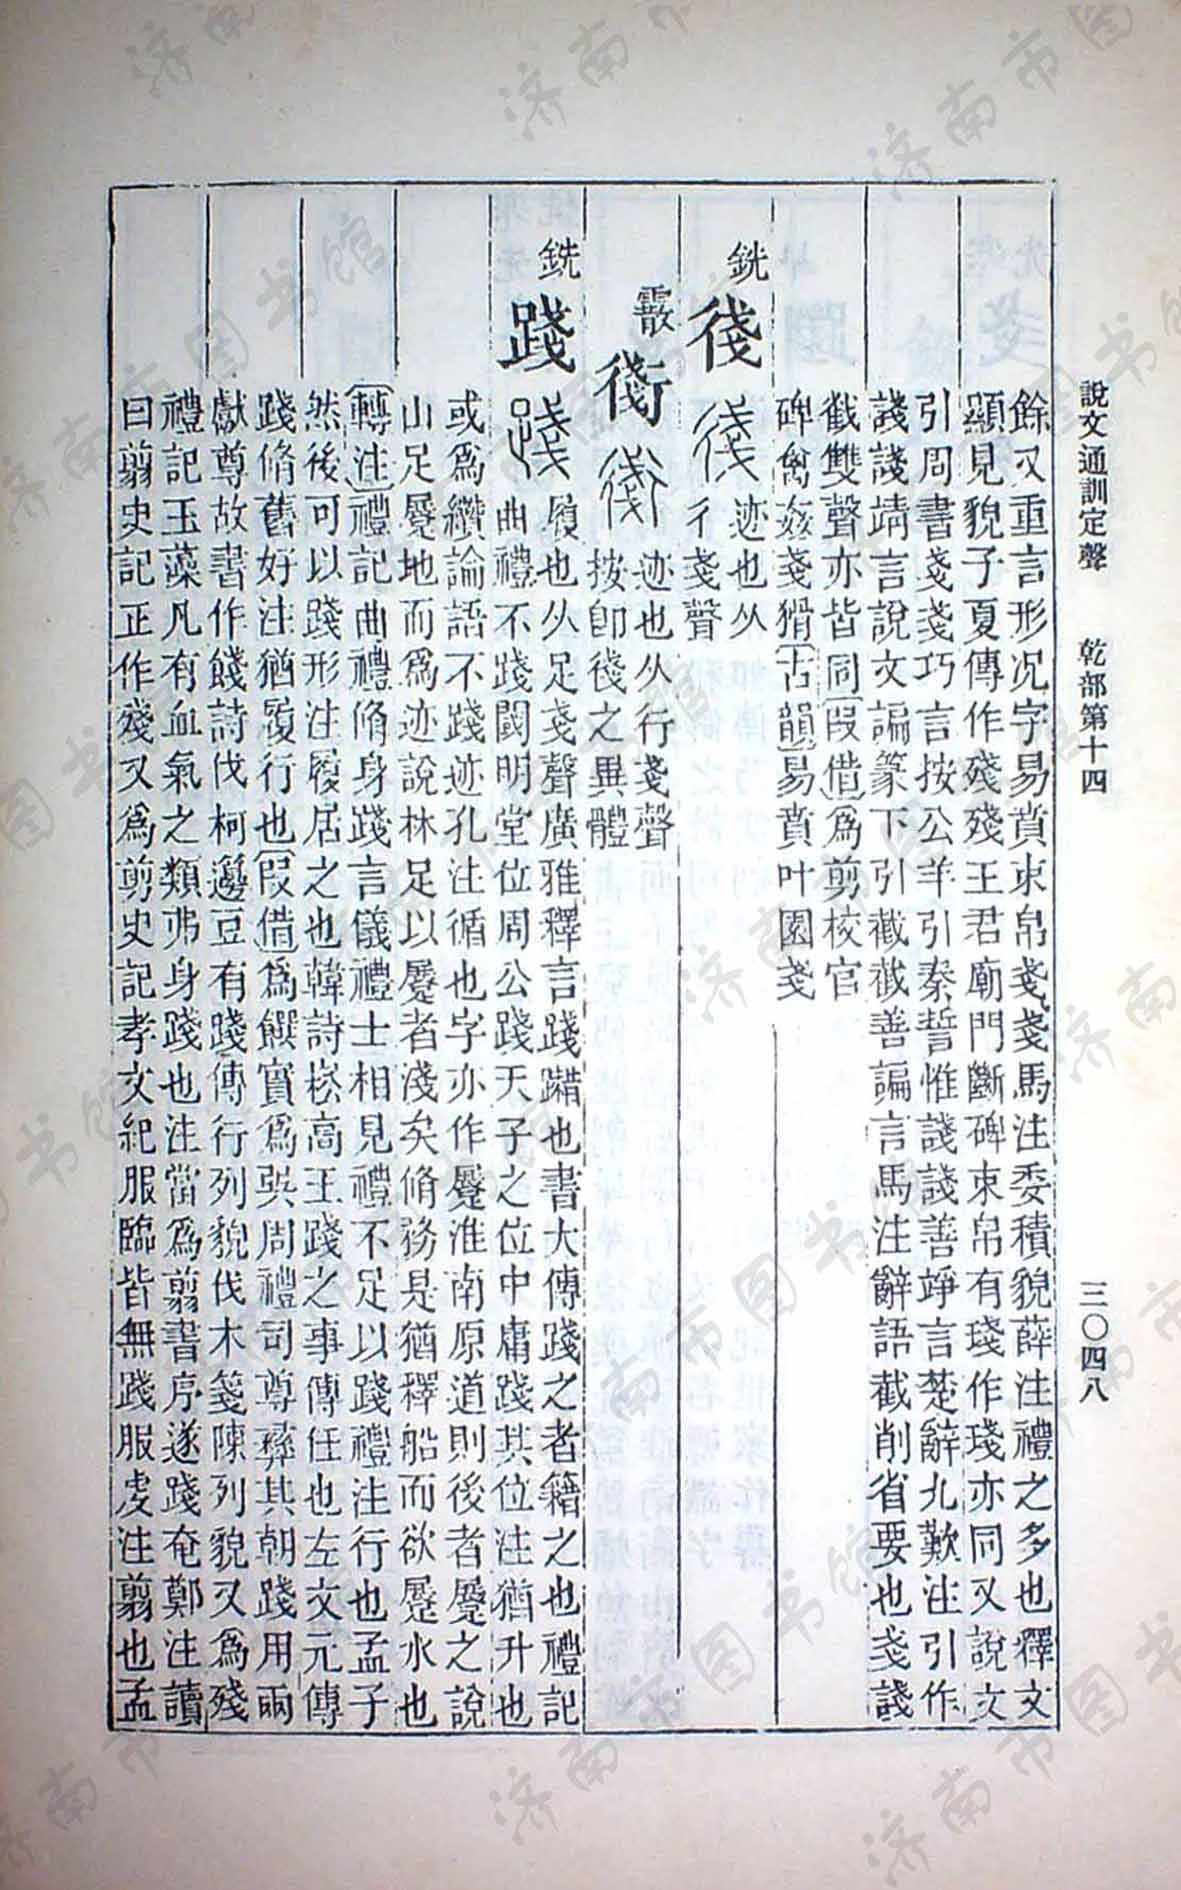 說文通訓定聲 乾部第十四 三〇四八
餘又重言形況字易賁束帛戔戔馬注委積貌薛注禮之多也釋文
顯見貌子夏傳作殘殘王君廟門斷碑束帛有琖作琖亦同又說文
引周書戔戔巧言按公羊引秦誓惟諓諓善竫言楚辭九歎注引作
諓諓靖言說文諞篆下引截截善諞言馬注辭語截削省要也戔諓
截雙聲亦皆同假借為剪校官
碑禽姦戔猾古韻易賁叶園戔
銑
俴
迹也从
彳戔聲
霰
衜
迹也从行戔聲
按即俴之異體
銑
踐
履也从足戔聲廣雅釋言踐蹋也書大傳踐之者籍之也禮記
曲禮不踐閾明堂位周公踐天子之位中庸踐其位注猶升也
或為纘論語不踐迹孔注循也字亦作㞡淮南原道則後者㞡之說
山足㞡地而為迹說林足以㞡者淺矣脩務是猶釋船而欲㞡水也
轉注禮記曲禮脩身踐言儀禮士相見禮不足以踐禮注行也孟子
然後可以踐形注履居之也韓詩崧高王踐之事傳任也左文元傳
踐脩舊好注猶履行也假借為饌實為巽周禮司尊彝其朝踐用兩
獻尊故書作餞詩伐柯籩豆有踐傳行列貌伐木箋陳列貌又為殘
禮記玉藻凡有血氣之類弗身踐也注當為翦書序遂踐奄鄭注讀
曰翦史記正作殘又為剪史記孝文紀服臨皆無踐服虔注翦也孟